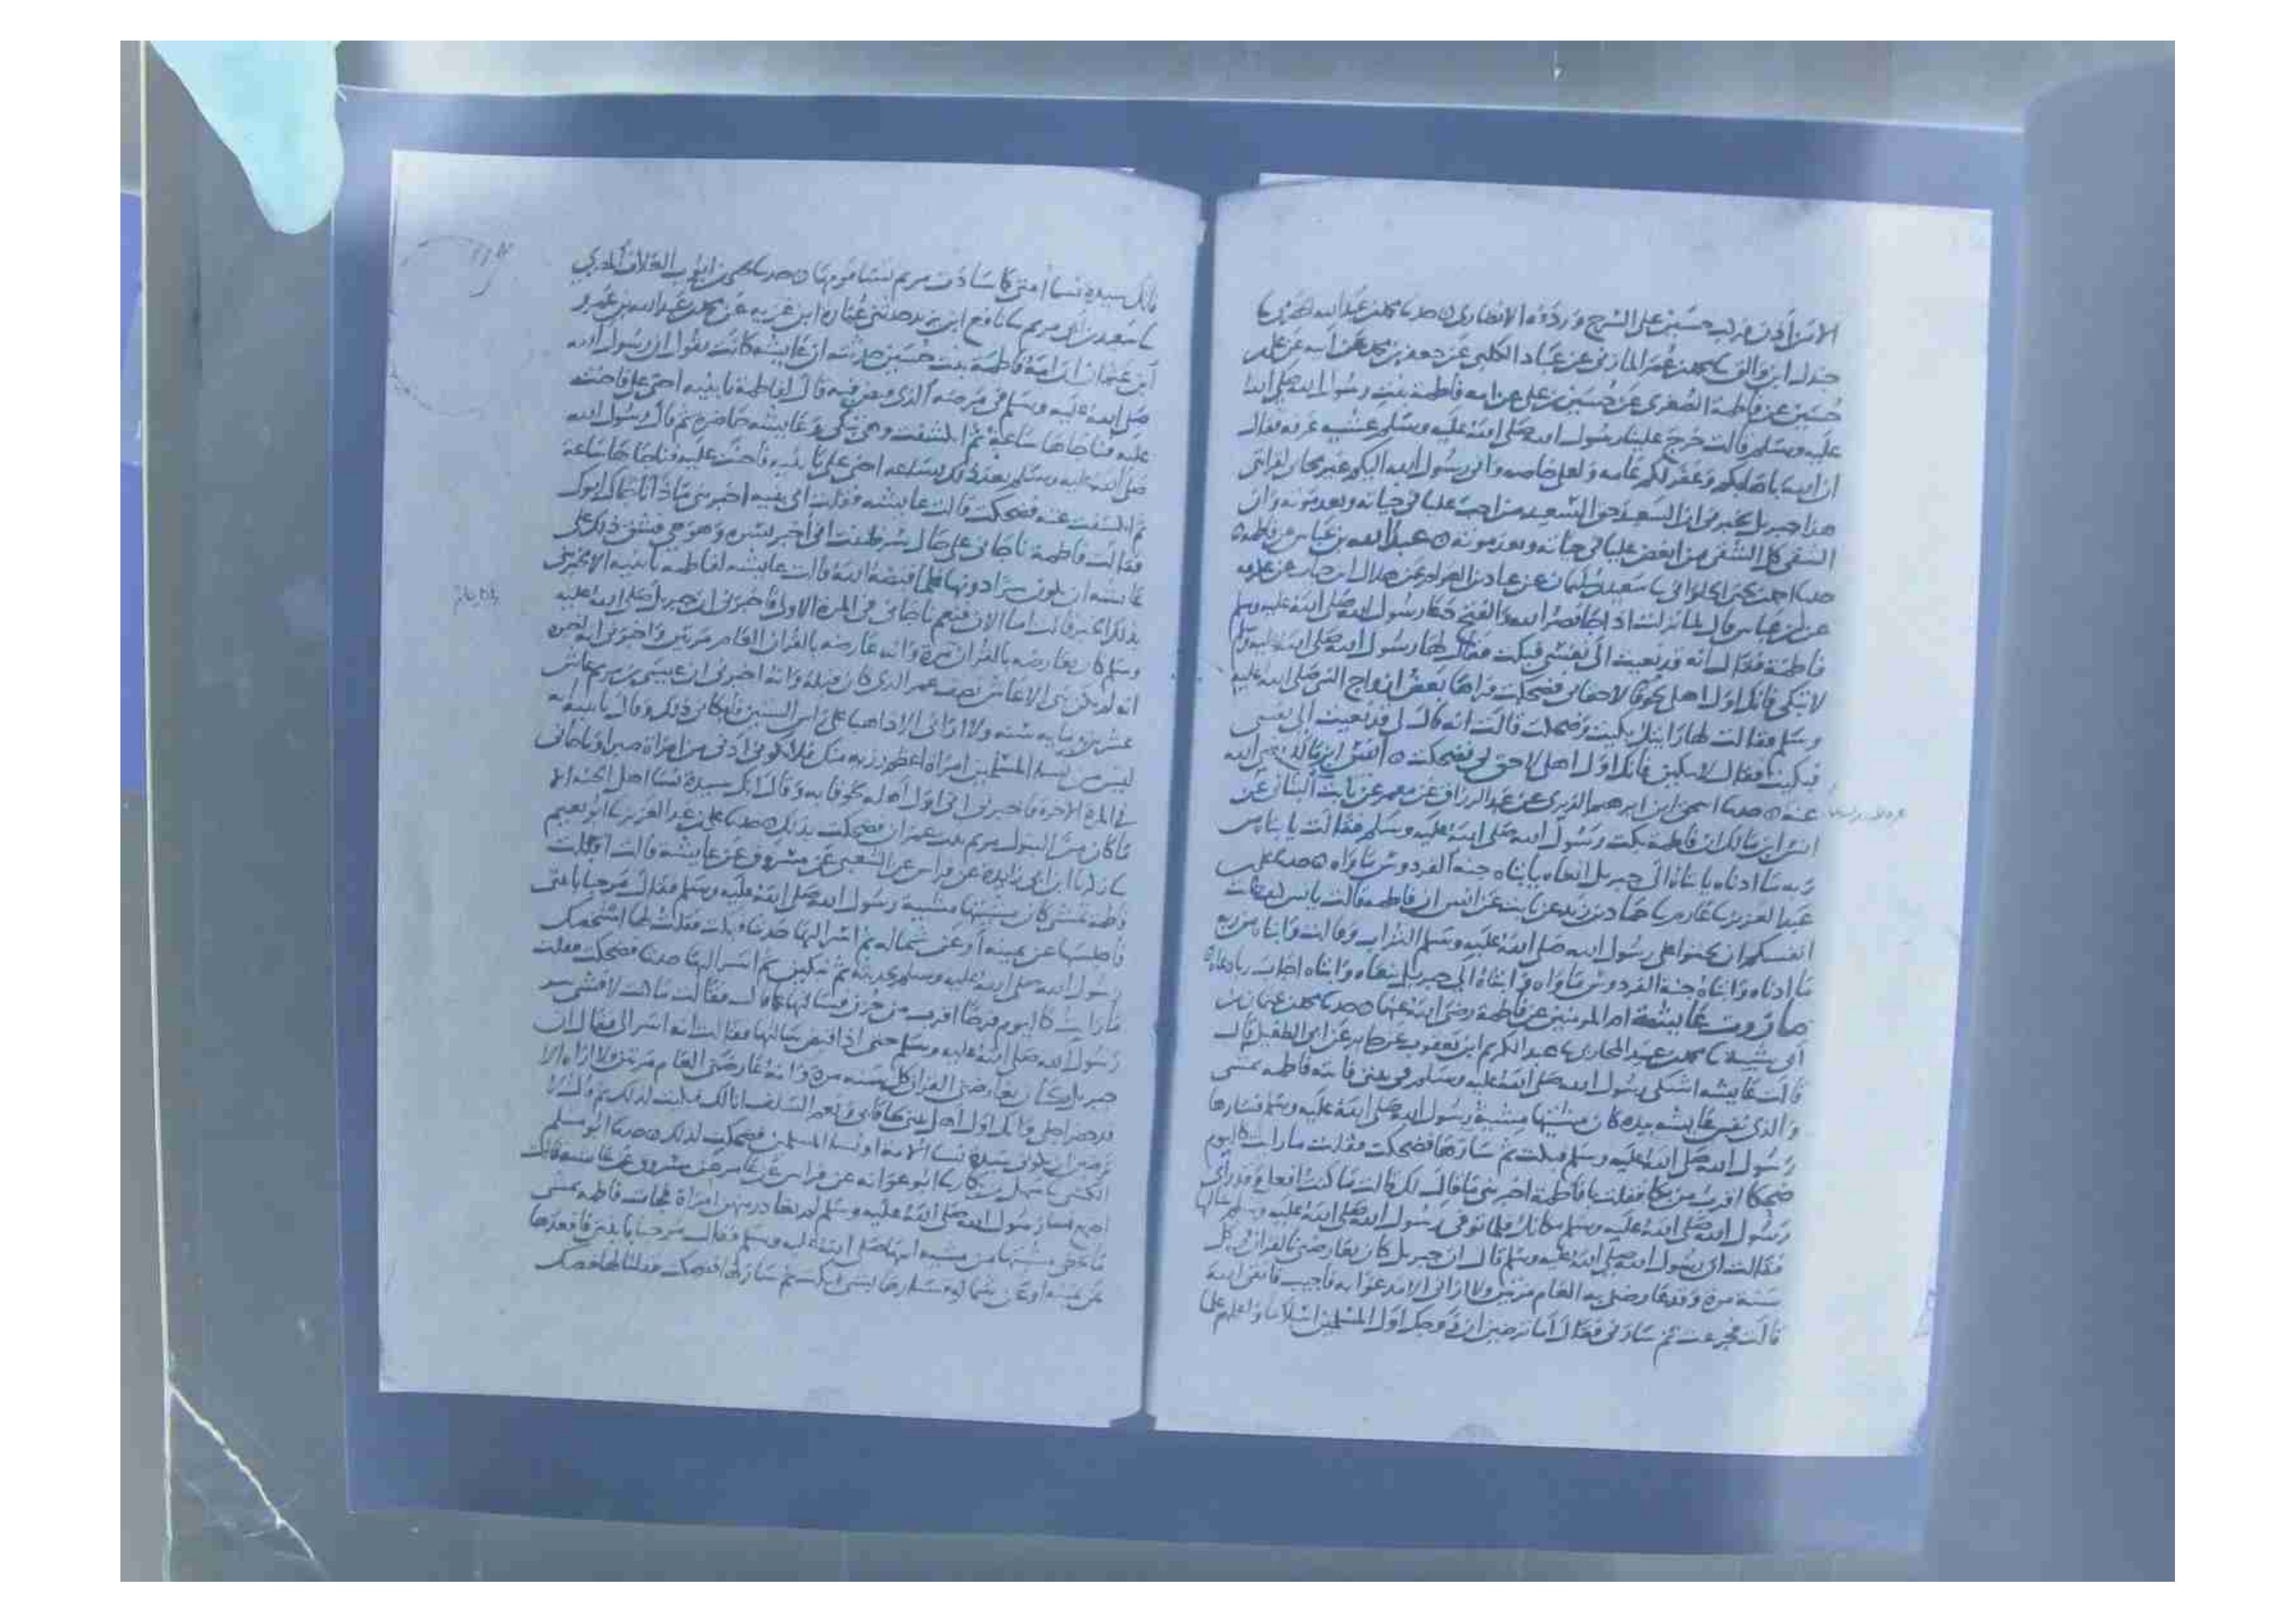 الا من أذن مركب حسين على السرج وردفه الانصاري حدثنا محمد بن عبد الله الحضرمي نا
جندل ابن والق نا محمد بن عمر المازني عن عباد الكلبي عن جعفر بن محمد عن ابيه عن علي بن
حسين عن فاطمة الصغرى عن حسين بن علي عن امه فاطمة بنت رسول الله صلى الله
عليه وسلم قالت خرج علينا رسول الله صلى الله عليه وسلم عشيه عرفه فقال
ان الله باهى بكم وغفر لكم عامه ولعلي خاصه واني رسول الله اليكم غير محاب لقرابتي
هذا جبريل يخبرني ان السعيد حق السعيد من احب عليا في حياته وبعد موته وان
الشقي كل الشقي من ابغض عليا في حياته وبعد موته عبد الله بن عباس عن فاطمة
حدثنا احمد بن يحيى الحلواني نا سعيد بن سليمان عن عباد بن العوام عن هلال ابن خباب عن عكرمه
عن ابن عباس قال لما نزلت اذا جا نصر الله والفتح دعا رسول الله صلى الله عليه وسلم
فاطمة فقال انه قد نعيت الي نفسي فبكت فقال لها رسول الله صلى الله عليه وسلم
لا تبكي فانك اول اهلي لحوقا لاحقا بي فضحكت فراها بعض ازواج النبي صلى الله عليه
وسلم فقالت لها رايتك بكيت وضحكت قالت انه قال لي قد نعيت الي نفسي
فبكيت فقال لا تبكين فانك اول اهلي لاحق بي فضحكت أنس ابن مالك رضي الله
عنه حدثنا اسحق ابن ابرهيم الدبري عن عبد الرزاق عن معمر عن ثابت البناني عن
انس ابن مالك ان فاطمة بكت رسول الله صلى الله عليه وسلم فقالت يا ابتاه من
ربه ما ادناه يا ابتاه الى جبريل انعاه يا ابتاه جنة الفردوس ماواه حدثنا علي بن
عبد العزيز نا عارم نا حماد بن زيد عن ثابت عن انس ان فاطمة قالت يا انس اطابت
انفسكم ان تحثوا على رسول الله صلى الله عليه وسلم التراب وقالت وابتاه من ربه
ما ادناه وابتاه جنة الفردوس ماواه وابتاه الى جبريل ننعاه وابتاه اجاب ربا دعاه
ما روت عايشة ام المومنين عن فاطمة رضي الله عنها حدثنا محمد بن عثمان بن
أبي شيبة نا محمد بن عبيد المحاربي نا عبد الكريم ابن يعقوب عن جابر عن ابي الطفيل قال
قالت عايشه اشتكى رسول الله صلى الله عليه وسلم في بيتي فاتته فاطمه تمشي
والذي نفس عايشه بيده كان مشيتها مشية رسول الله صلى الله عليه وسلم فسارها
رسول الله صلى الله عليه وسلم فبكت ثم سارها فضحكت فقلت ما رايت كاليوم
ضحكا اقرب من بكا فقلت يا فاطمة اخبريني ما قال لك قالت ما كنت افعل وقد راى
رسول الله صلى الله عليه وسلم مكانك فلما توفي رسول الله صلى الله عليه وسلم سالتها
فقالت اي رسول الله صلى الله عليه وسلم قال ان جبريل كان يعارضني القران في كل
سنه مرة وقد عارضني به العام مرتين ولا اراني الا مدعوا به فاجيب فاتقي الله
قالت فجزعت ثم سارني فقال أما ترضين ان زوجك اول المسلمين اسلاما واعلمهم علما
فانك سيدة نسا امتي كما سادت مريم نسا قومها حدثنا يحيى بن ايوب العلاف المصري
نا سعيد بن ابي مريم نا نافع ابن يزيد حدثني عمارة ابن غزيه عن محمد بن عبد الله بن عمرو
ابن عثمان ان امه فاطمة بنت حسين حدثته ان عايشه كانت تقول ان رسول الله
صلى الله عليه وسلم في مرضه الذي قبض فيه قال لفاطمة يا بنيه احني علي فاحنت
عليه فناجاها ساعة ثم انكشفت وهي تبكي وعايشه حاضره ثم قال رسول الله
صلى الله عليه وسلم بعد ذلك بساعه احني علي يا بنيه فاحنت عليه فناجاها ساعة
ثم انكشفت عنه فضحكت قالت عايشه فقلت اي بنيه اخبريني ماذا ناجاك ابوك
فقالت فاطمة ناجاني على حال سر ظننت اني اخبر بسره وهو حي فشق ذلك على
عايشه ان يكون سرا دونها فلما قبضه الله قالت عايشه لفاطمه يا بنيه الا تخبريني
بذلك الخبر قالت اما الان فنعم ناجاني في المرة الاولى فاخبرني ان جبريل صلى الله عليه
وسلم كان يعارضه بالقران مرة وانه عارضه بالقران العام مرتين واخبرني انه اخبره
انه لم يكن نبي الا عاش نصف عمر الذي كان قبله وانه اخبرني ان عيسى بن مريم عاش
عشرين ومايه سنه ولا اراني الا ذاهبا على راس الستين فابكاني ذلك وقال يا بنيه انه
ليس من نسا المسلمين امراة اعظم رزيه منك فلا تكوني ادنى من امراة صبرا وناجاني
في المرة الاخره فاخبرني اني اول اهله لحوقا به وقال انك سيدة نسا اهل الجنه الا
ما كان من البتول مريم بنت عمران فضحكت بذلك حدثنا علي بن عبد العزيز نا ابو نعيم
نا زكريا ابن ابي زايدة عن فراس عن الشعبي عن مسروق عن عايشة قالت اقبلت
فاطمه تمشي كان مشيتها مشية رسول الله صلى الله عليه وسلم فقال مرحبا بابنتي
فاجلسها عن يمينه أو عن شماله ثم اسر اليها حديثا فبكت فقلت لها استخصك
رسول الله صلى الله عليه وسلم بحديثه ثم تبكين ثم اسر اليها حديثا فضحكت فقلت
ما رايت كاليوم فرحا اقرب من حزن فسالتها عما قال فقالت ما كنت لافشي سر
رسول الله صلى الله عليه وسلم حتى اذا قبض سالتها فقالت انه اسر الي فقال ان
جبريل كان يعارضني القران كل سنه مرة وانه عارضني العام مرتين ولا اراه الا
قد حضر اجلي وانك اول اهل بيتي لحاقا بي ونعم السلف انا لك فبكت لذلك ثم قال الا
ترضين ان تكوني سيدة نسا الامة او نسا المسلمين فضحكت لذلك حدثنا ابو مسلم
الكشي نا سهل بن بكار نا ابو عوانه عن فراس عن عامر عن مسروق عن عايشه قالت
اجتمع نسا رسول الله صلى الله عليه وسلم لم يغادر منهن امراة فجات فاطمه تمشي
ما تخطي مشيتها من مشيه ابيها صلى الله عليه وسلم فقال مرحبا بابنتي فاقعدها
عن يمينه او عن شماله فسارها بشي فبكت ثم سارها فضحكت فقلنا لها خصك